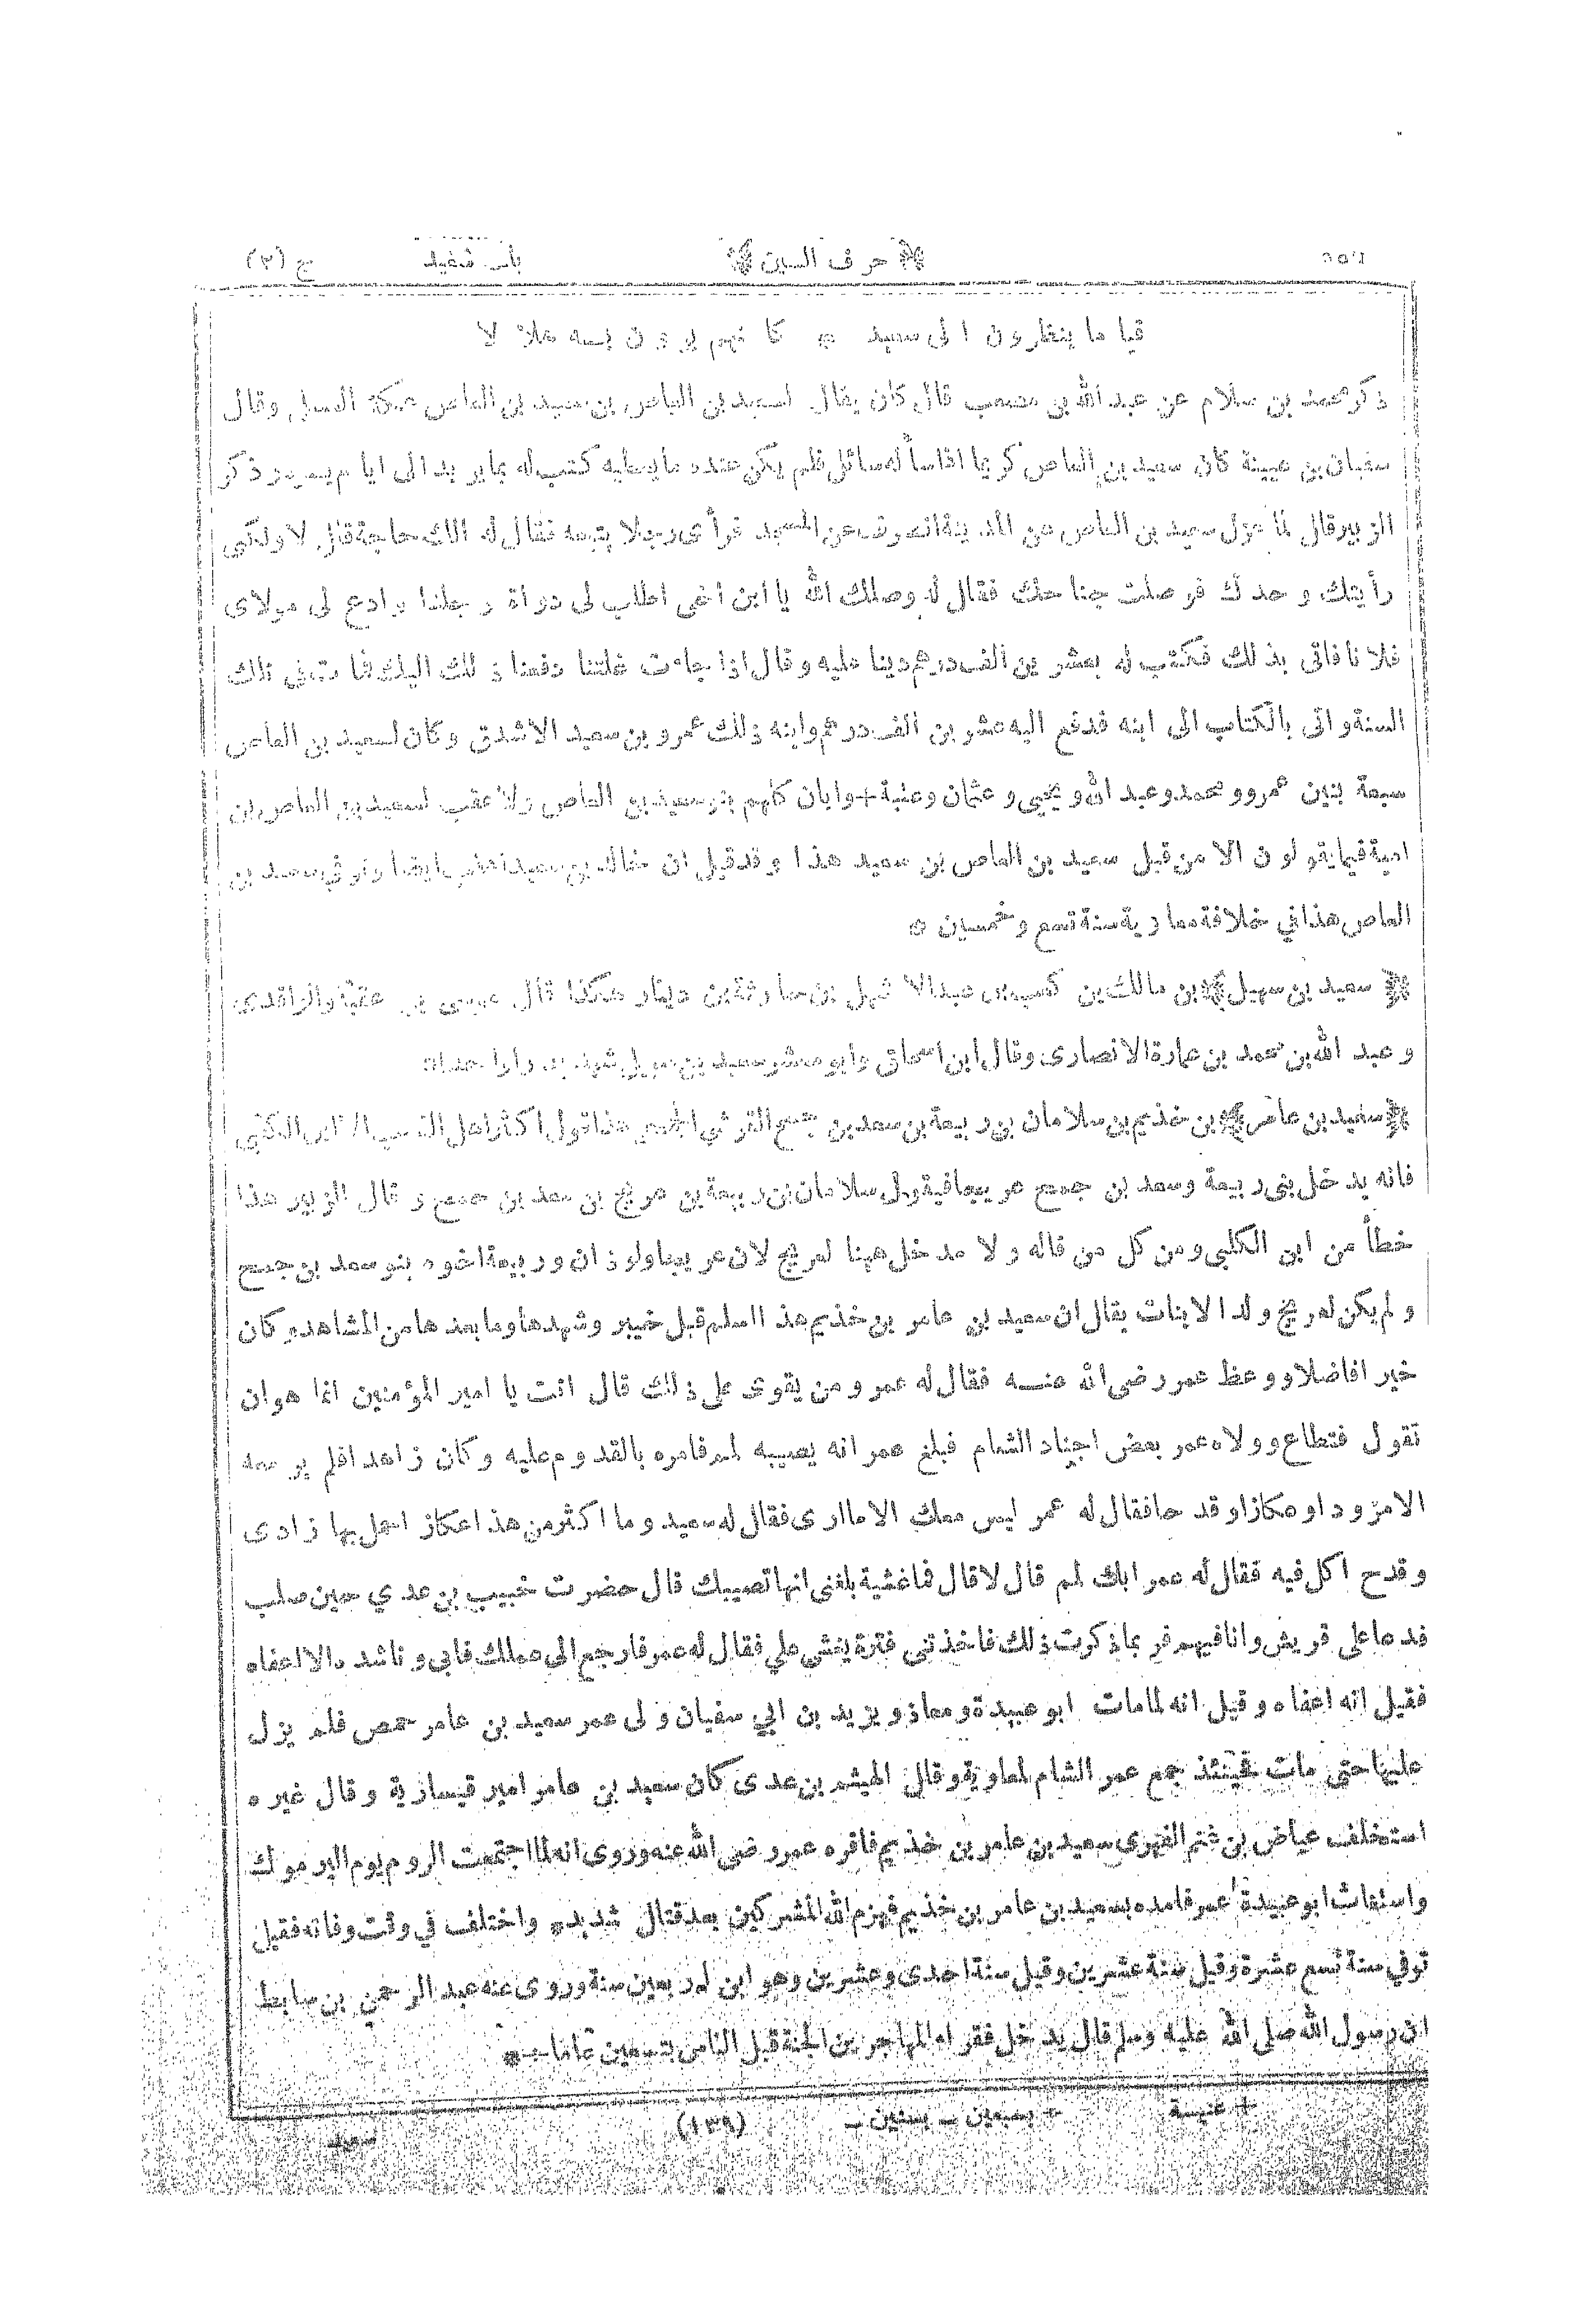 ﴿ حرف السين ﴾ باب سعيد ج (٢)
قياما ينظرون الى سعيد * كانهم يرون به هلالا
ذكر محمد بن سلام عن عبد الله بن مصعب قال كان يقال لسعيد بن العاص بن سعيد بن العاص عكة العسل وقال
سفيان بن عيينة كان سعيد بن العاص كريما اذا سأله سائل فلم يكن عنده ما يعطيه كتب له بما يريد الى ايام يسره وذكر
الزبير قال لما عزل سعيد بن العاص عن المدينة انصرف عن المسجد فرأى رجلا يتبعه فقال له الك حاجة قال لا ولكنى
رأيتك وحدك فوصلت جناحك فقال له وصلك الله يا ابن اخى اطلب لى دواة وجلدا وادع لى مولاى
فلانا فاتى بذلك فكتب له بعشرين الف درهم دينا عليه وقال اذا جاءت غلتنا دفعنا ذلك اليك فمات فى تلك
السنة واتى بالكتاب الى ابنه فدفع اليه عشرين الف درهم وابنه ذلك عمرو بن سعيد الاشدق وكان لسعيد بن العاص
سبعة بنين عمرو ومحمد وعبد الله ويحيى وعثمان وعنبة+وابان كلهم بنو سعيد بن العاص ولا عقب لسعيد بن العاص بن
امية فيما يقولون الا من قبل سعيد بن العاص بن سعيد هذا وقد قيل ان خالد بن سعيد اعقب ايضا وتوفي سعيد بن
العاص هذا في خلافة معاوية سنة تسع وخمسين *
﴿ سعيد بن سهيل ﴾ بن مالك بن كعب بن عبد الاشهل بن حارثة بن دينار هكذا قال موسى بن عقبة والواقدى
وعبد الله بن محمد بن عمارة الانصارى وقال ابن اسحاق وابو معشر سعيد بن سهيل شهد بدرا واحدا*
﴿ سعيد بن عامر ﴾ بن خذيم بن سلامان بن ربيعة بن سعد بن جمح القرشي الجمحي هذا قول اكثر اهل النسب الا ابن الكلبى
فانه يدخل بنى ربيعة وسعد بن جمح عريجا فيقول سلامان بن ربيعة بن عريج بن سعد بن جمح وقال الزبير هذا
خطأ من ابن الكلبى ومن كل من قاله ولا مدخل ههنا لعريج لان عريجا ولوذان وربيعة اخوة بنو سعد بن جمح
ولم يكن لعريج ولد الا بنات يقال ان سعيد بن عامر بن خذيم هذا اسلم قبل خيبر وشهدها وما بعدها من المشاهد وكان
خيرا فاضلا ووعظ عمر رضى الله عنه فقال له عمر ومن يقوى على ذلك قال انت يا امير المؤمنين انما هو ان
تقول فتطاع وولاه عمر بعض اجناد الشام فبلغ عمر انه يصيبه لمم فامره بالقدوم عليه وكان زاهدا فلم ير معه
الا مزودا وعكازا وقدحا فقال له عمر ليس معك الا ما ارى فقال له سعيد وما اكثر من هذا عكاز احمل بها زادى
وقدح اكل فيه فقال له عمر ابك لمم قال لا قال فما غشية بلغنى انها تصيبك قال حضرت خبيب بن عدي حين صلب
فدعا على قريش وانا فيهم فربما ذكرت ذلك فاخذتنى فترة يغشى علي فقال له عمر فارجع الى عملك فابى وناشده الا اعفاه
فقيل انه اعفاه وقيل انه لما مات ابو عبيدة ومعاذ ويزيد بن ابي سفيان ولى عمر سعيد بن عامر حمص فلم يزل
عليها حتى مات فحينئذ جمع عمر الشام لمعاوية وقال الهيثم بن عدى كان سعيد بن عامر امير قيسارية وقال غيره
استخلف عياض بن غنم الفهرى سعيد بن عامر بن خذيم فاقره عمر رضى الله عنه وروى انه لما اجتمعت الروم يوم اليرموك
واستغاث ابو عبيدة عمر فامده بسعيد بن عامر بن خذيم فهزم الله المشركين بعد قتال شديد* واختلف في وقت وفاته فقيل
توفي سنة تسع عشرة وقيل سنة عشرين وقيل سنة احدى وعشرين وهو ابن اربعين سنة وروى عنه عبد الرحمن بن سابط
ان رسول الله صلى الله عليه وسلم قال يدخل فقراء المهاجرين الجنة قبل الناس بتسعين عاما+*
+ عنبسة + بسبعين – بستين – (١٣٩) سعيد